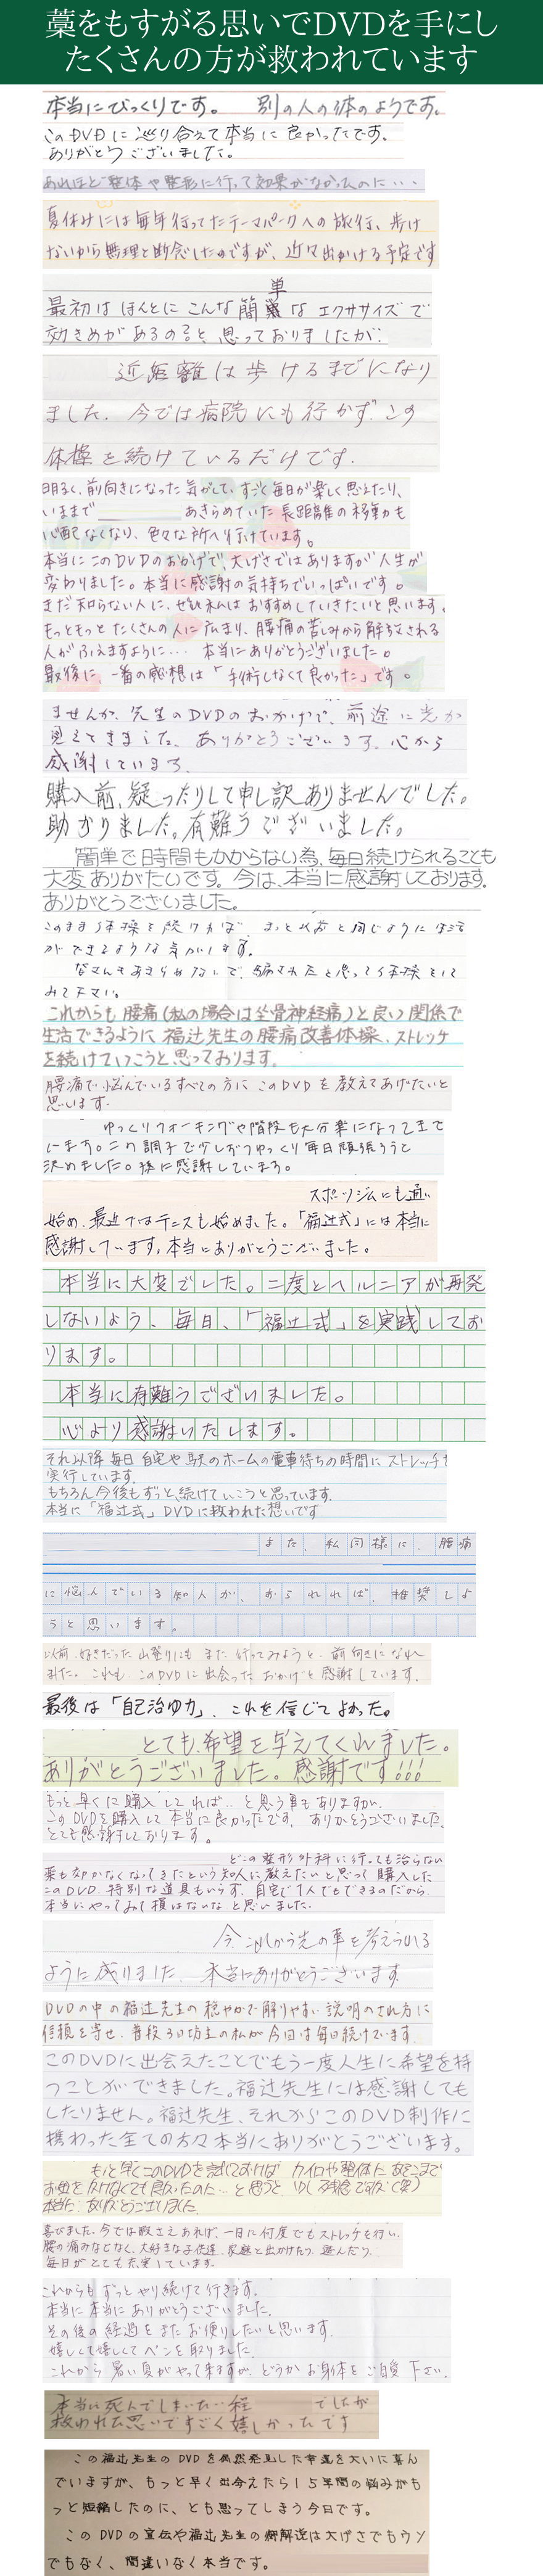 藁をもすがる思いでDVDを手にし
たくさんの方が救われています
本当にびっくりです。 別の人の体のようです。
このDVDに巡り合えて本当に良かったです。
ありがとうございました。
あれほど整体や整形に行って効果がなかったのに・・・
夏休みには毎年行ってたテーマパークへの旅行、歩け
ないから無理と断念したのですが、近々出かける予定です
最初はほんとにこんな簡単なエクササイズで
効きめがあるの?と思っておりましたが
近距離は歩けるまでになり
ました。今では病院にも行かず、この
体操を続けているだけです。
明るく、前向きになった気がして、すごく毎日が楽しく思えたり、
いままで あきらめていた長距離の移動も
心配なくなり、色々な所へ行けています。
本当にこのDVDのおかげで、大げさではありますが人生が
変わりました。本当に感謝の気持ちでいっぱいです。
まだ知らない人に、ぜひ私はおすすめしていきたいと思います。
もっともっとたくさんの人に広まり、腰痛の苦しみから解放される
人がふえますように・・・ 本当にありがとうございました。
最後に、一番の感想は「手術しなくて良かった」です。
ませんが、先生のDVDのおかげで、前途に光が
見えてきました。ありがとうございます。心から
感謝しています。
購入前、疑ったりして申し訳ありませんでした。
助かりました。有難うございました。
簡単で時間もかからない為、毎日続けられることも
大変ありがたいです。今は、本当に感謝しております。
ありがとうございました。
このまま体操を続ければ、きっと以前と同じように生活
ができるような気がします。
みなさんもあきらめないで、騙されたと思って体操をして
みて下さい。
これからも腰痛(私の場合は坐骨神経痛)と良い関係で
生活できるように福辻先生の腰痛改善体操、ストレッチ
を続けていこうと思っております。
腰痛で悩んでいるすべての方にこのDVDを教えてあげたいと
思います。
ゆっくりウォーキングや階段も大分楽になってきて
います。この調子で少しずつゆっくり毎日頑張ろうと
決めました。様に感謝しています。
スポーツジムにも通い
始め、最近ではテニスも始めました。「福辻式」には本当に
感謝しています。本当にありがとうございました。
本当に大変でした。二度とヘルニアが再発
しないよう、毎日、「福辻式」を実践してお
ります。
本当に有難うございました。
心より感謝いたします。
それ以降毎日自宅や駅のホームの電車待ちの時間にストレッチを
実行しています。
もちろん今後もずっと続けていこうと思っています。
本当に「福辻式」DVDに救われた想いです
また、私同様に、腰痛
に悩んでいる知人が、おられれば、推奨しよ
うと思います。
以前、好きだった山登りにもまた行ってみようと、前向きになれ
ました。これも、このDVDに出会ったおかげと感謝しています。
最後は「自己治ゆ力」、これを信じてよかった。
とても希望を与えてくれました。
ありがとうございました。感謝です!!!
もっと早くに購入していれば・・と思う事もありますが、
このDVDを購入して本当に良かったです。ありがとうございました。
とても感謝しております。
どこの整形外科に行っても治らない
薬も効かなくなってきたという知人に教えたいと思って購入した
このDVD。特別な道具もいらず、自宅で1人でもできるのだから
本当にやってみて損はないなと思いました。
今、これから先の事を考えられる
ように成りました。本当にありがとうございます。
DVDの中の福辻先生の穏やかで解りやすい説明のされ方に
信頼を寄せ、普段3日坊主の私が今日は毎日続けています。
このDVDに出会えたことでもう一度人生に希望を持
つことができました。福辻先生には感謝しても
したりません。福辻先生、それからこのDVD制作に
携わった全ての方々本当にありがとうございます。
もっと早くこのDVDを試しておけば、カイロや整体に、あそこまで
お金をかけなくても良かったのに…と思うと、少し残念ですが(笑)
本当に、ありがとうございました。
喜びました。今では暇さえあれば、一日に何度でもストレッチを行い、
腰の痛みなどなく、大好きな子供達、家庭と出かけたり、遊んだり、
毎日がとても充実しています。
これからもずっとやり続けて行きます。
本当に本当にありがとうございました。
その後の経過をまたお便りしたいと思います。
嬉しくて嬉しくてペンを取りました。
これから暑い夏がやって来ますが、どうかお身体をご自愛下さい。
本当に死んでしまいたい程 でしたが
救われた思いですごく嬉しかったです
この福辻先生のDVDを偶然発見した幸運を大いに喜ん
でいますが、もっと早く出会えたら15年間の悩みがも
っと短縮したのに、とも思ってしまう今日です。
このDVDの宣伝や福辻先生の解説は大げさでもウソ
でもなく、間違いなく本当です。